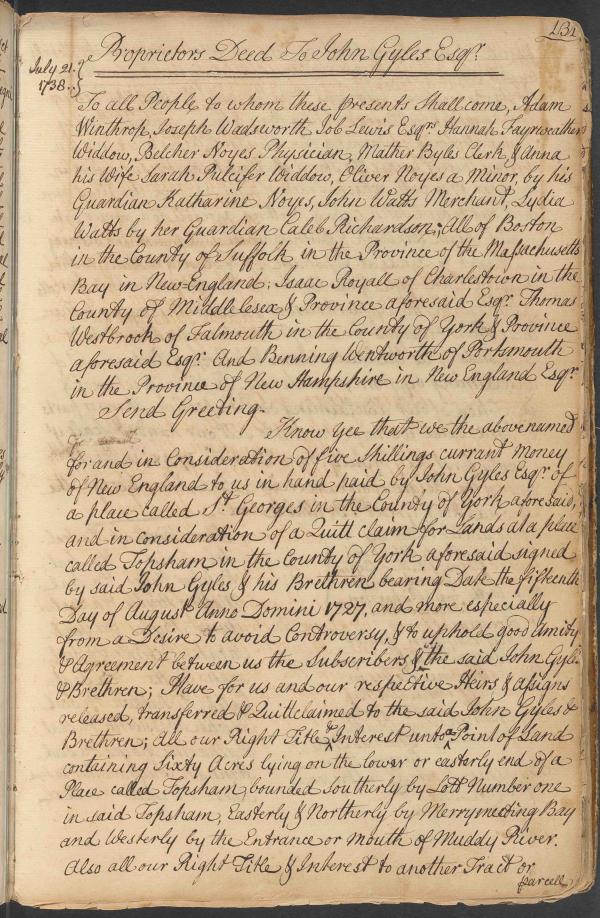 131
Proprietors Deed To John Gyles Esqr.
July 21.
1738..
To all People to whom these presents Shall come, Adam
Winthrop, Joseph Wadsworth, Job Lewis Esqrs. Hannah Fayrweather
Widdow, Belcher Noyes Physician, Mather Byles Clerk & Anna
his Wife Sarah Pulcifer Widdow, Oliver Noyes a Minor, by his
Guardian Katharine Noyes, John Watts Merchant, Lydia
Watts by her Guardian Caleb Richardson; All of Boston
in the County of Suffolk in the Province of the Massachusetts
Bay in New England; Isaac Royall of Charlestown in the
County of Middlesex & Province aforesaid Esqr. Thomas
Westbrook of Falmouth in the County of York & Province
aforesaid Esqr. And Benning Wentworth of Portsmouth
in the Province of New Hampshire in New England Esqr.
Send Greeting.
Know yee that we the abovenamed
for and in Consideration of five Shillings currant Money
of New England to us in hand paid by John Gyles Esqr. of
a place called St. Georges in the County of York aforesaid,
and in consideration of a Quitt claim for Lands at a place
called Topsham in the County of York aforesaid signed
by said John Gyles & his Brethren bearing Date the fifteenth
Day of August Anno Domini 1727, and more especially
from a Desire to avoid Controversy, & to uphold good Amity
& Agreement between us the Subscribers & the said John Gyles
& Brethren; Have for us and our respective Heirs & assigns
released, transferred & Quitlclaimed to the said John Gyles &
Brethren; All our Right Title & Interest unto a Point of Land
containing Sixty Acres lying on the lower or easterly end of a
Place called Topsham, bounded Southerly by Lott Number one
in said Topsham, Easterly & Northerly by Merrymeeting Bay
and Westerly by the Entrance or mouth of Muddy River.
Also all our Right Title & Interest to another Tract or
parcell